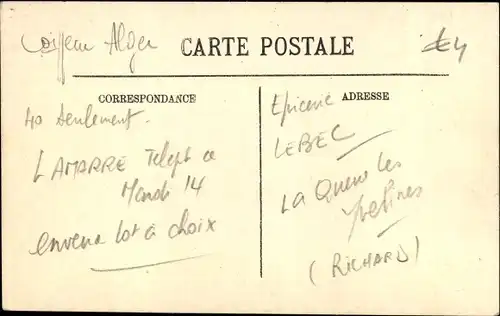 Coiffeur Alger
CARTE POSTALE
CORRESPONDANCE
40 seulement.
LAMARRE Teleph ce
Mardi 14
envena lot à choix
Epicerie
ADRESSE
LEBEL
La Queue les
Yvelines
(RICHARD)